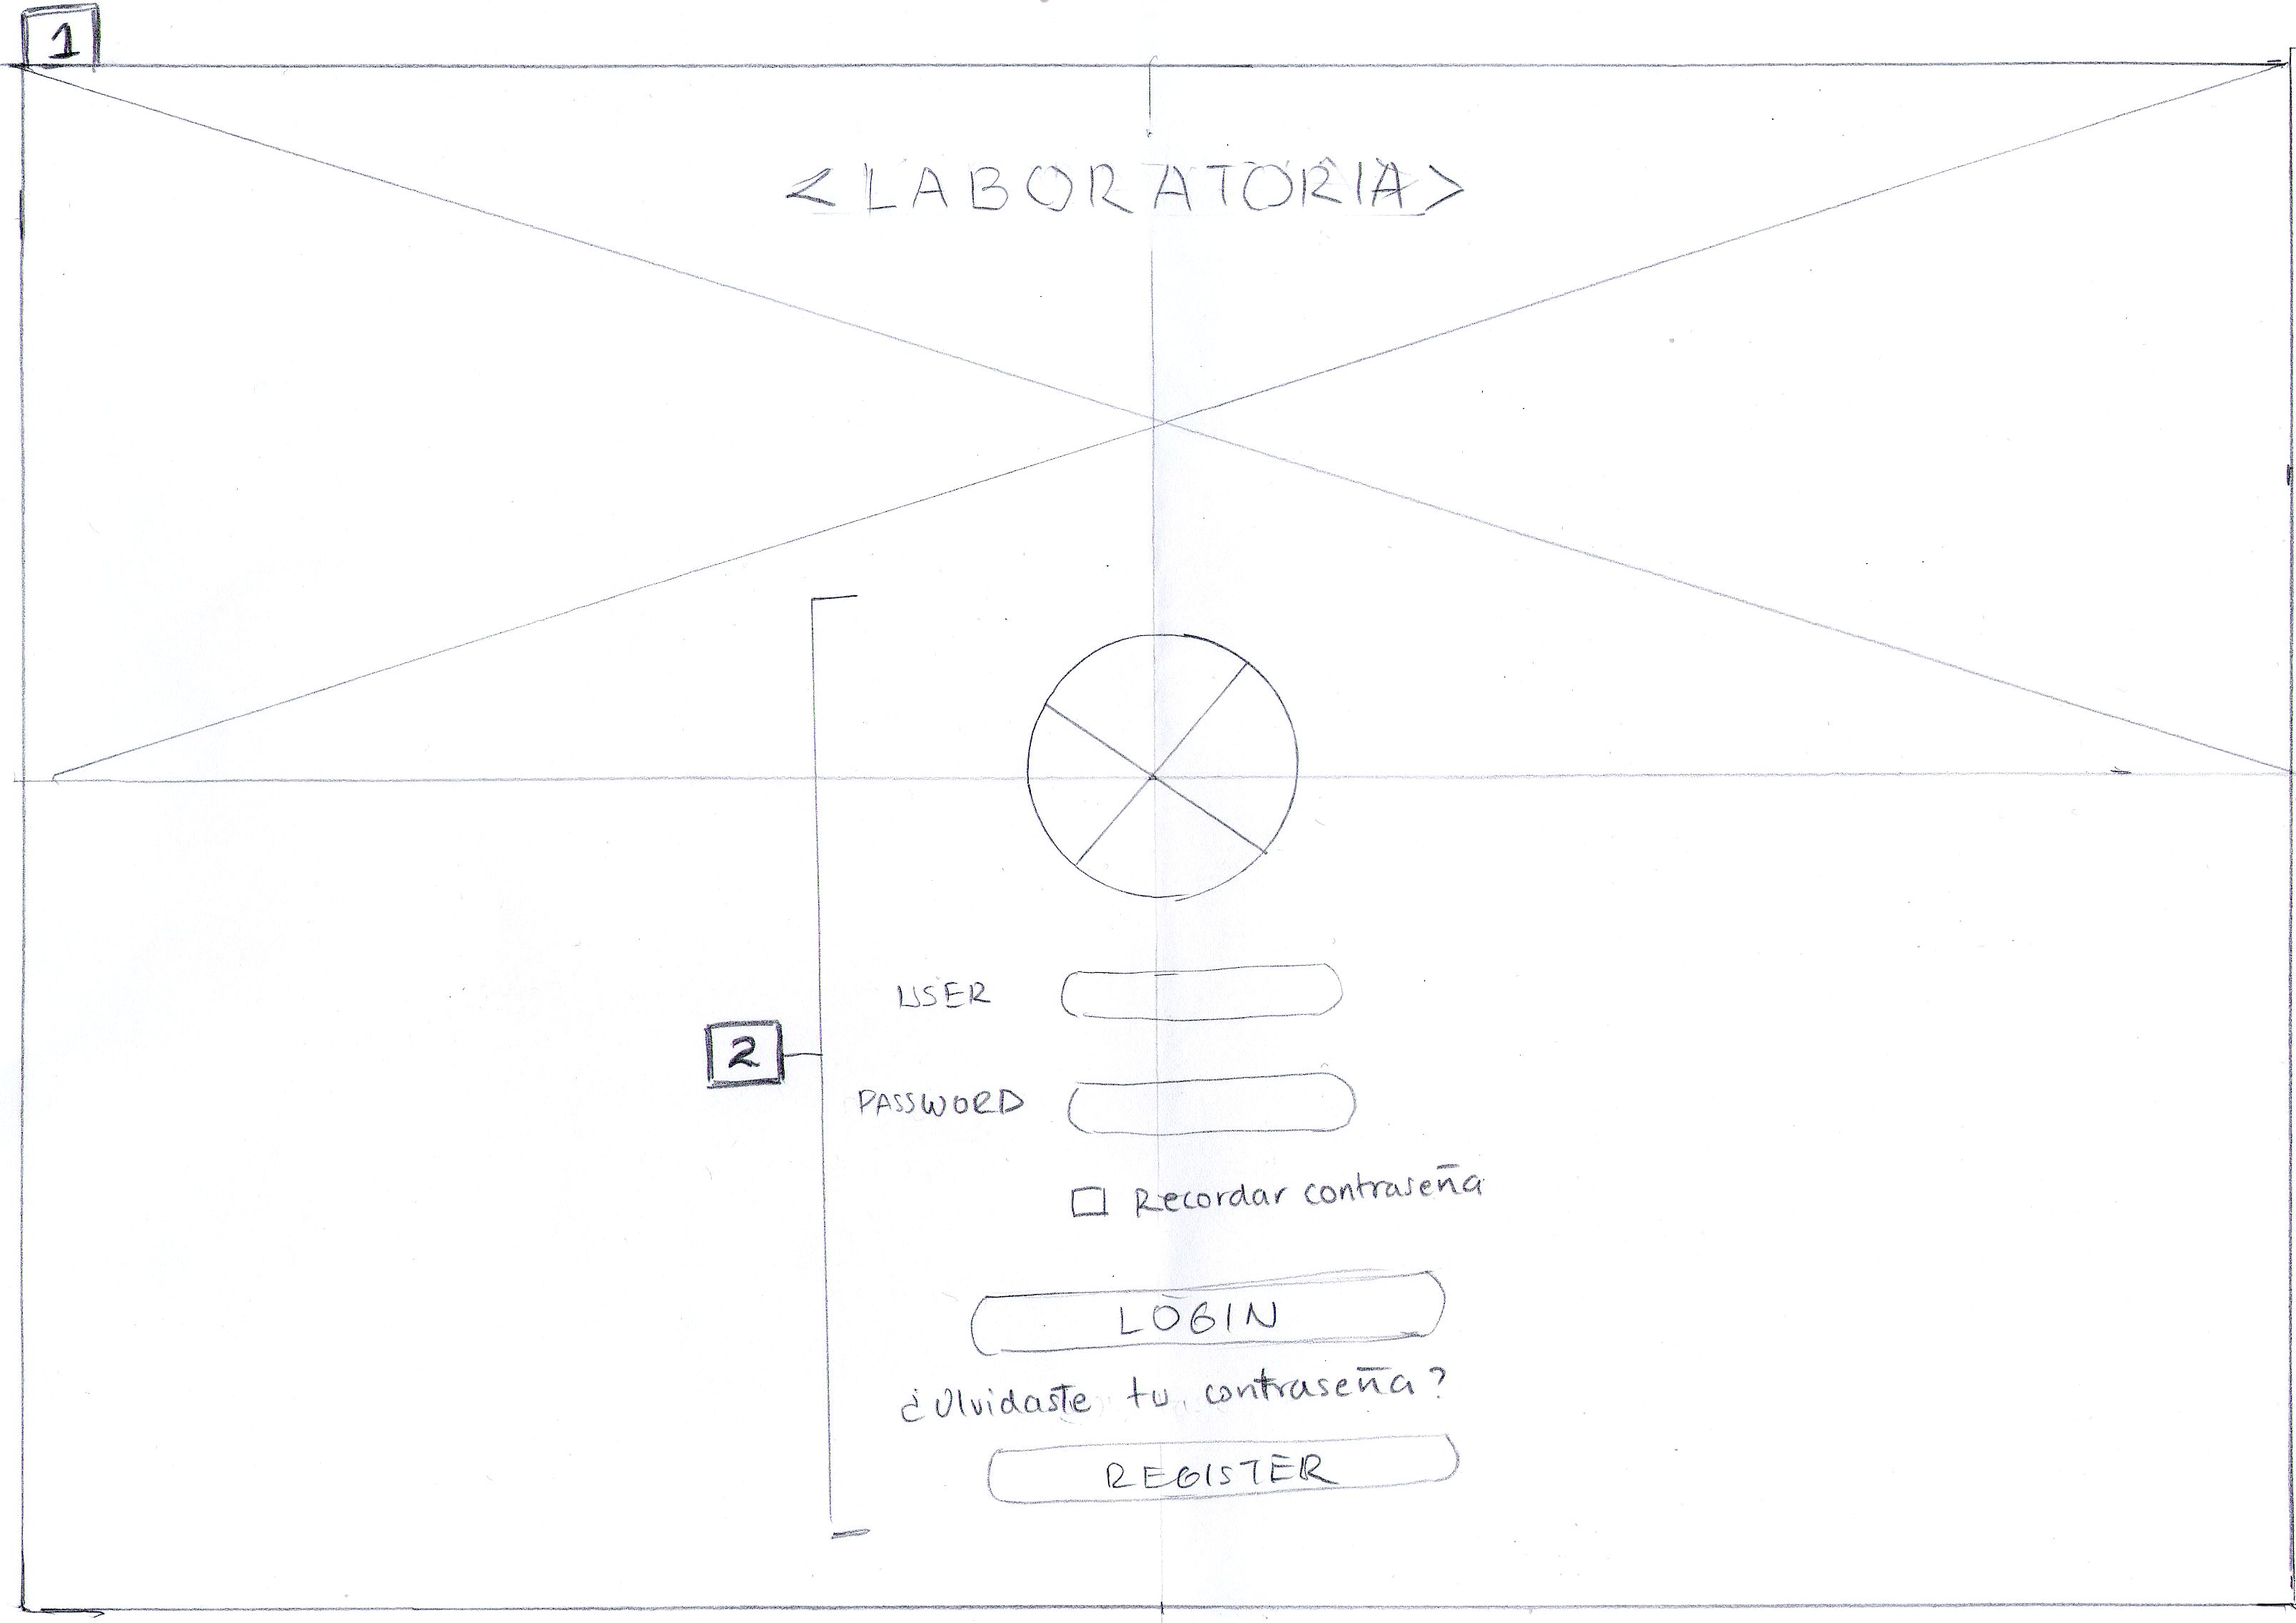 1
<LABORATORIA>
USER
2
PASSWORD
Recordar contraseña
LOGIN
¿Olvidaste tu contraseña?
REGISTER